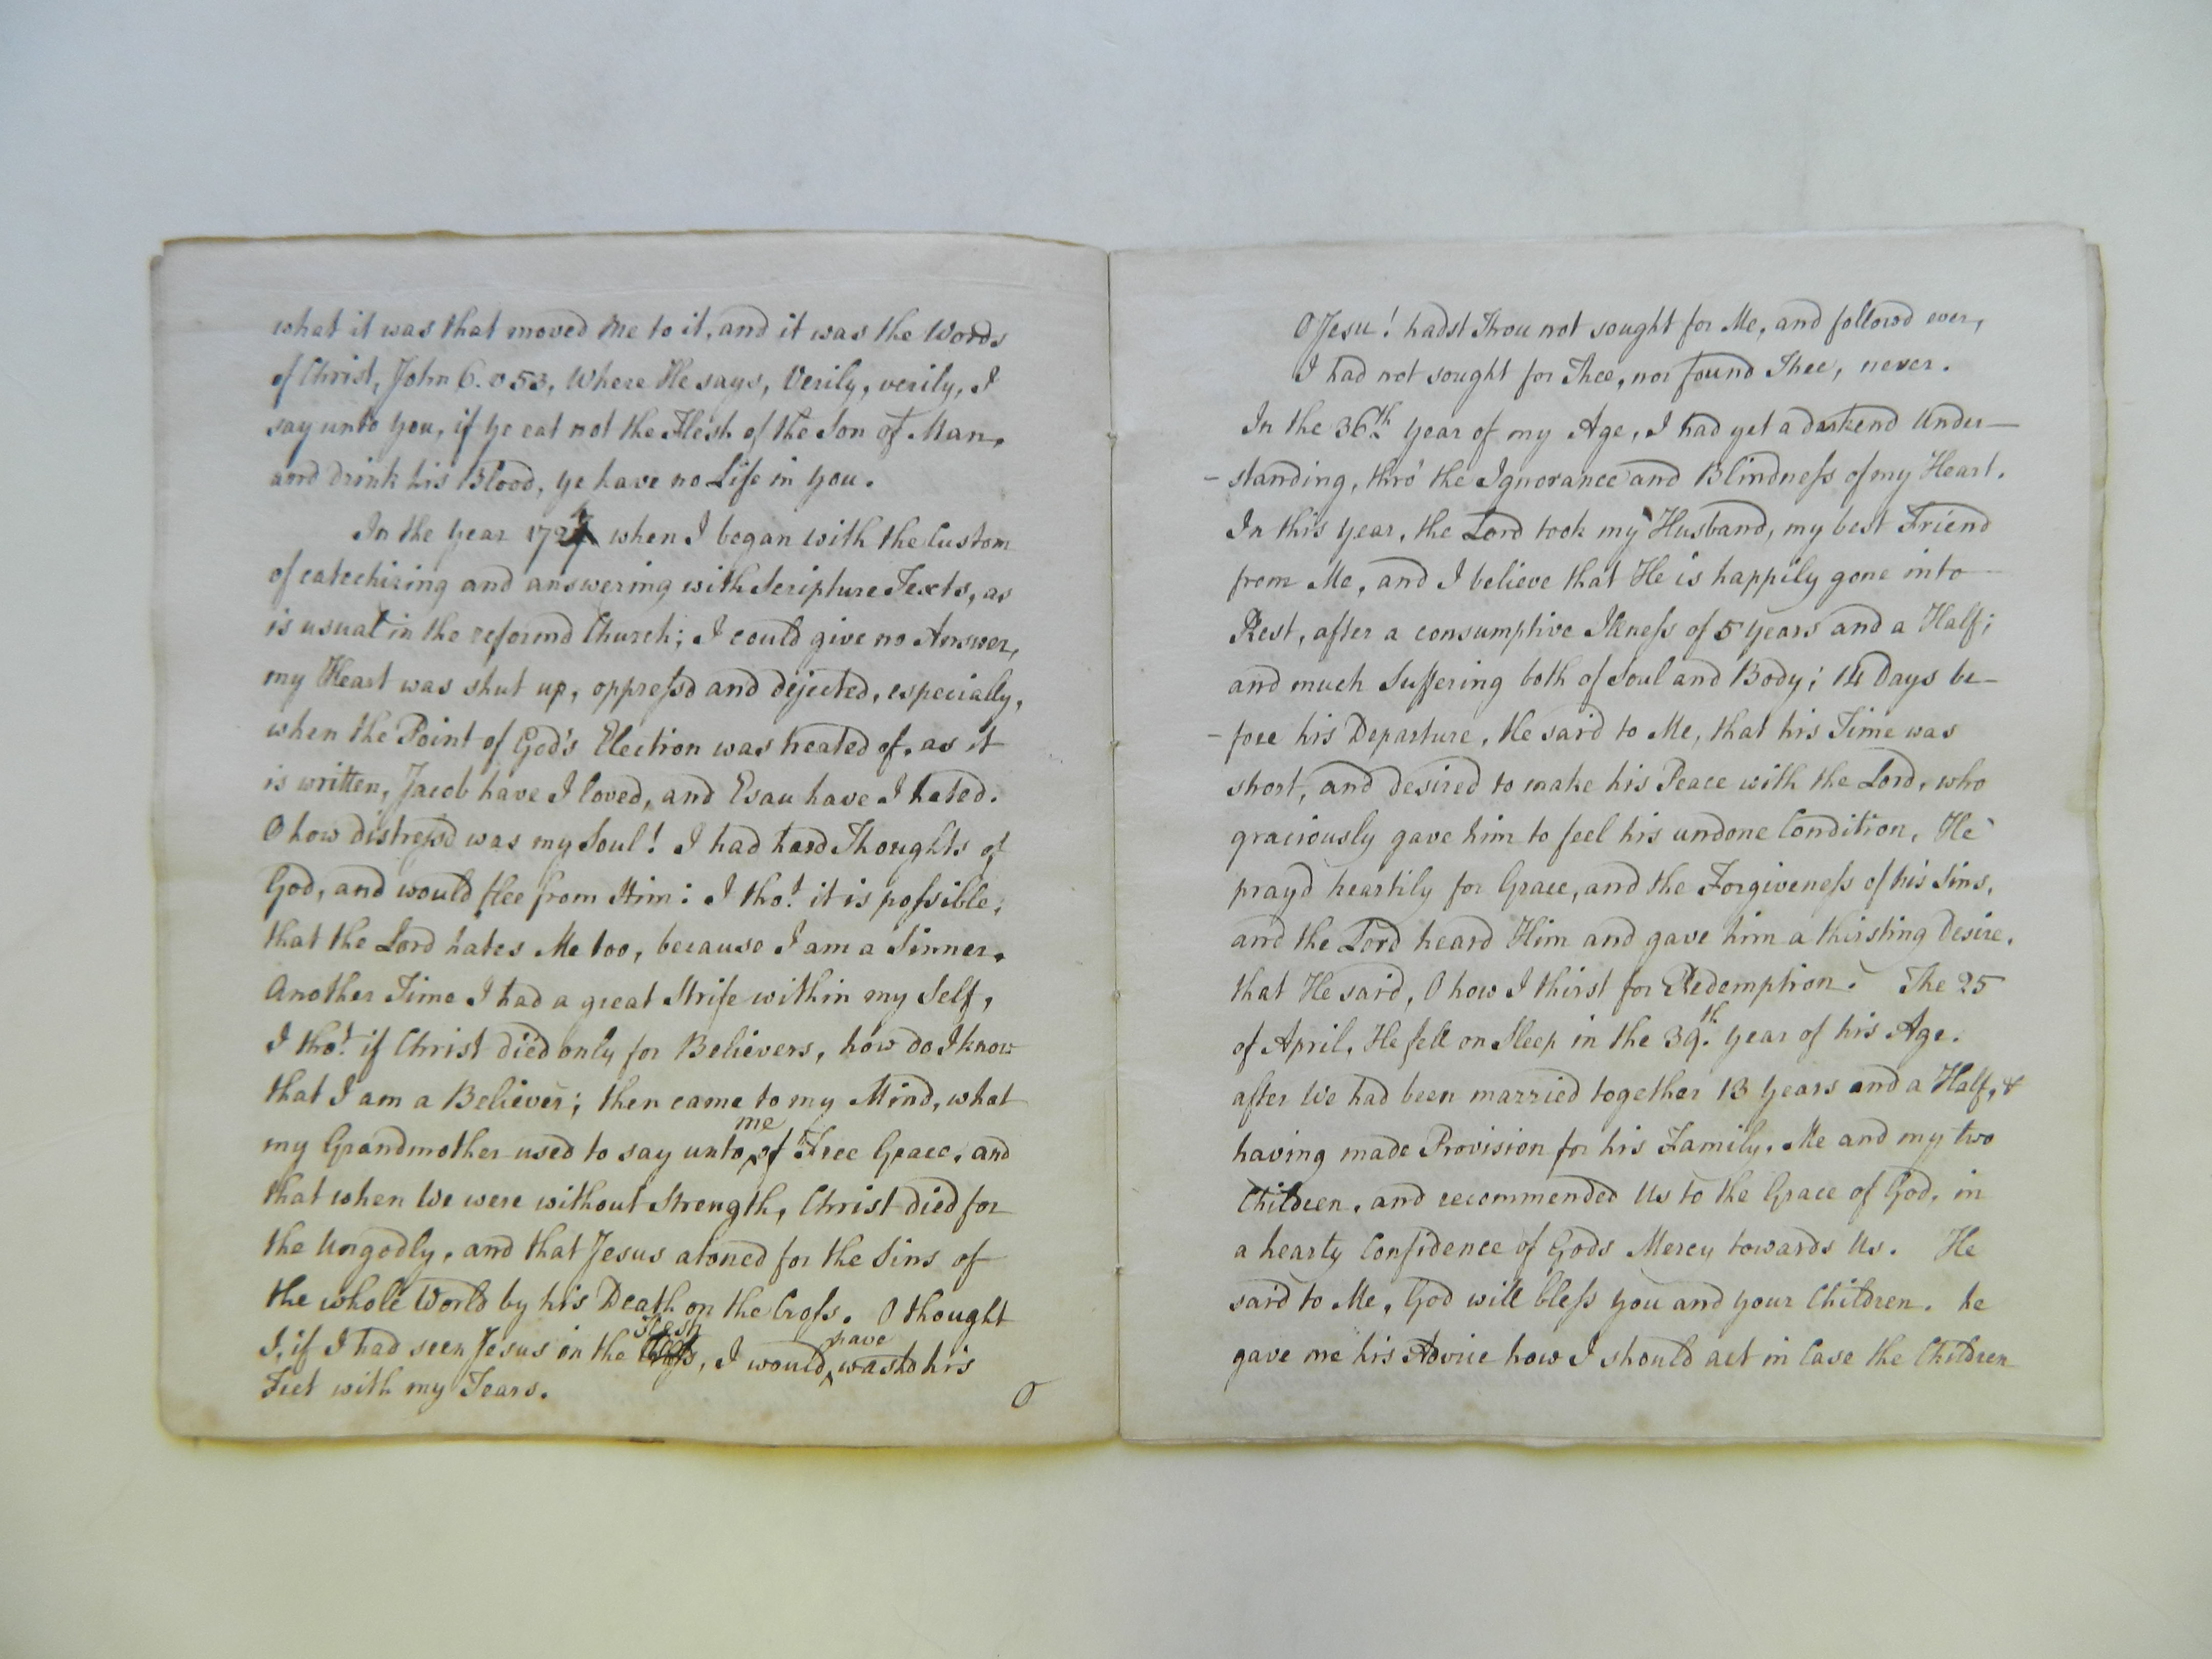 what it was that moved Me to it, and it was the Words
of Christ, John 6. v 53, Where He says, Verily, verily, I
say unto you, if ye eat not the Flesh of the Son of Man,
and drink his Blood, ye have no Life in you.
In the year when I began with the Custom
of catechizing and answering with Scripture Texts, as
is usual in the reformd Church; I could give no Answer,
my Heart was shut up, oppressd and dejected, especially,
when the Point of God's Election was treated of, as it
is written, Jacob have I loved, and Esau have I hated.
O how distressd was my Soul! I had hard Thoughts of
God, and would flee from Him: I tho.t it is possible,
that the Lord hates Me too, because I am a Sinner.
Another Time I had a great Strife within my Self,
I tho.t if Christ died only for Believers, how do I know
that I am a Believer; then came to my Mind, what
my Grandmother used to say unto me of Free Grace, and
that when We were without Strength, Christ died for
the Ungodly, and that Jesus atoned for the Sins of
the whole World by his Death on the Cross. O thought
I, if I had seen Jesus in the Flesh, I would have washd his
Feet with my Tears.
O
O Jesu! hadst Thou not sought for Me, and followd ever,
I had not sought for Thee, nor found Thee, never.
In the 36th year of my Age, I had yet a darkend Under-
-standing, thro' the Ignorance and Blindness of my Heart.
In this year, the Lord took my Husband, my best Friend
from Me, and I believe that He is happily gone into
Rest, after a consumptive Illness of 5 years and a Half;
and much Suffering both of Soul and Body; 14 Days be-
-fore his Departure, He said to Me, that his Time was
short, and desired to make his Peace with the Lord, who
graciously gave him to feel his undone Condition, He
prayd heartily for Grace, and the Forgiveness of his Sins,
and the Lord heard Him and gave him a thirsting Desire,
that He said, O how I thirst for Redemption. The 25
of April, He fell on Sleep in the 39.th year of his Age.
after We had been married together 13 years and a Half, &
having made Provision for his Family, Me and my two
Children, and recommended Us to the Grace of God, in
a hearty Confidence of Gods Mercy towards Us. He
said to Me, God will bless you and your Children. he
gave me his Advice how I should act in Case the Children